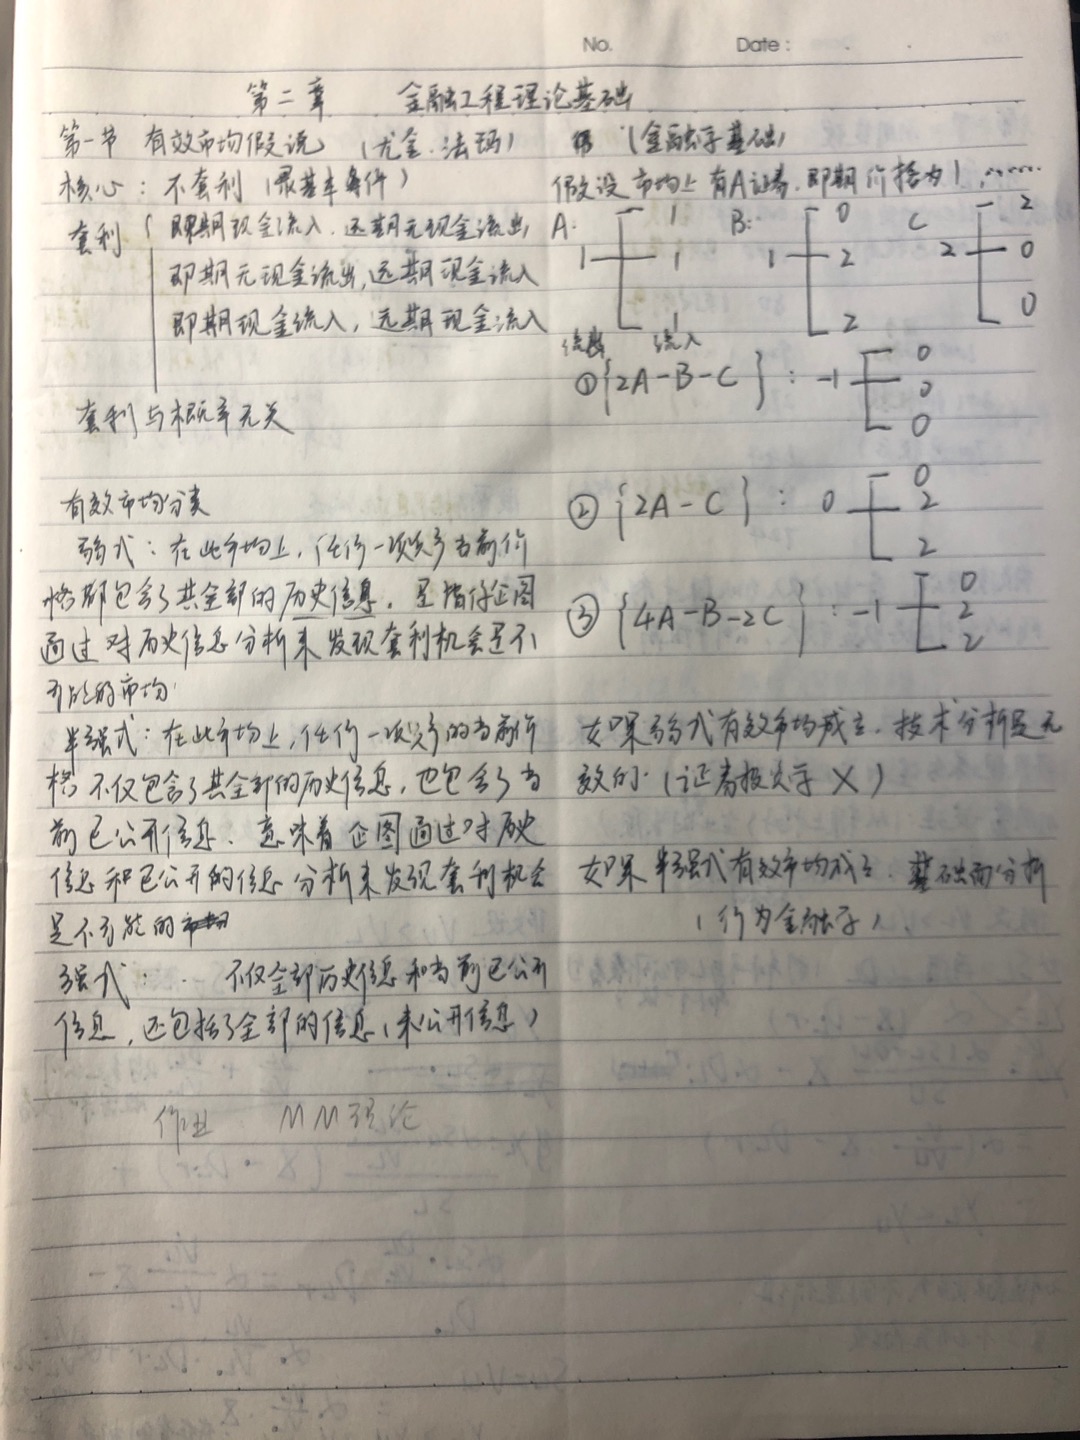 No. Date:
第二章 金融工程理论基础
第一节 有效市场假说 (尤金·法玛)
核心: 不套利 (最基本条件)
套利 { 即期现金流入, 远期无现金流出
即期无现金流出, 远期现金流入
即期现金流入, 远期现金流入
套利与概率无关
有效市场分类
弱式: 在此市场上, 任何一项资产当前价
格都包含了其全部的历史信息, 是指任企图
通过对历史信息分析来发现套利机会是不
可能的市场.
半强式: 在此市场上, 任何一项资产的当前价
格不仅包含了其全部的历史信息, 也包含了当
前已公开信息、意味着企图通过对历史
信息和已公开的信息分析来发现套利机会
是不可能的
强式: ... 不仅全部历史信息和当前已公开
信息, 还包括了全部的信息 (未公开信息)
作业 MM理论
(金融学基础)
假设市场上有A证券, 即期价格为1, ……
A: 1 1 1 1 B: 1 0 2 2 C 2 2 0 0
流出 流入
① {2A-B-C} : -1 0 0 0
② {2A-C} : 0 0 2 2
③ {4A-B-2C} : -1 0 2 2
如果弱式有效市场成立, 技术分析是无
效的. (证券投资学 X)
如果半强式有效市场成立, 基础面分析
(行为金融学)